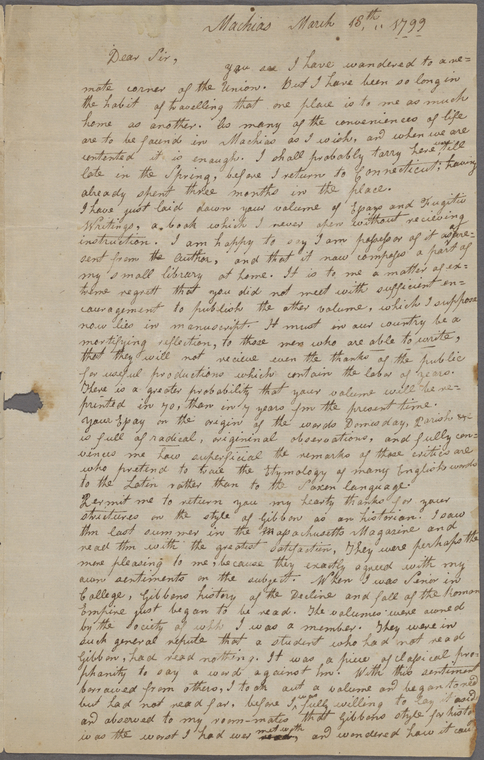 Machias March 18.th, 1799
Dear Sir,
you see I have wandered to a re=
mote corner of the Union. But I have been so long in
the habit of travelling that one place is to me as much
home as another. As many of the conveniences of life
are to be found in Machias as I wish, and when we are
contented it is enough. I shall probably tarry here till
late in the Spring, before I return to Connecticut, having
already spent three months in the place.
I have just laid down your volume of Essays and Fugitiv
Writings, a book which I never open without recieving
instruction. I am happy to say I am possessor of it as pre=
sent from the Author, and that it now composes a part of
my small library at home. It is to me a matter of ex=
treme regrett that you did not meet with sufficient en=
couragement to publish the other volume, which I suppose
now lies in manuscript. It must in our country be a
mortifying reflection, to those men who are able to write,
that they will not recieve even the thanks of the public
for useful productions which contain the labor of years.
There is a greater probability that your volume will be re=
printed in 70, then in 7 years fm the present time.
Your Essay on the origin of the words Domesday, Parish &c
is full of radical, origineral observations, and fully con=
vinces me how superficial the remarks of those critics are
who pretend to trace the Etymology of many English words
to the Latin rather than to the Saxon language.
Permit me to return you my hearty thanks for your
strictures on the style of Gibbon as an historian. I saw
thm last summer in the Massachusetts Magazine and
read thm with the greatest satisfaction, They were perhaps the
more pleasing to me, because they exactly agreed with my
own sentiments on the subject. When I was Senior in
College, Gibbons history of the Decline and fall of the Roman
Empire just began to be read. The volumes were owned
by the Society of wch I was a member. They were in
such general repute that a student who had not read
Gibbon, had read nothing. It was a piece of classical pro=
phanity to say a word against hm. With this sentiment
borrowed from others, I took out a volume and began to read
but had not read far, before I was fully willing to lay it aside
and observed to my room-mates that Gibbons style for histo
was the worst I had ever met with, and wondered how it